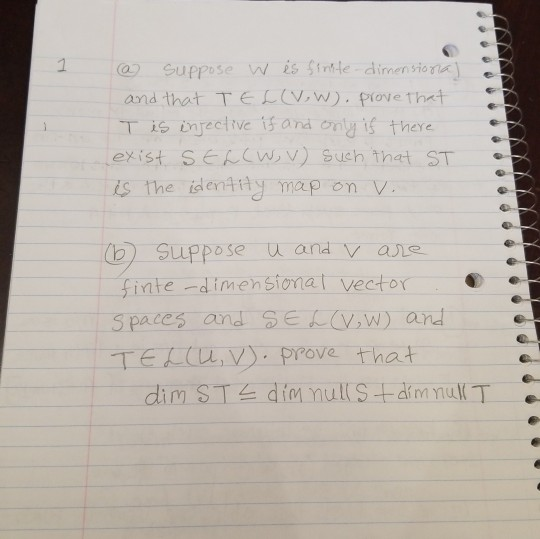 1 (a) suppose W is finite-dimensional
and that T ∈ L(V,W). prove that
T is injective if and only if there
exist S ∈ L(W,V) such that ST
is the identity map on V.
(b) suppose u and v are
finte-dimensional vector
spaces and S ∈ L(V,W) and
T ∈ L(U,V). prove that
dim ST ≤ dim null S + dim null T